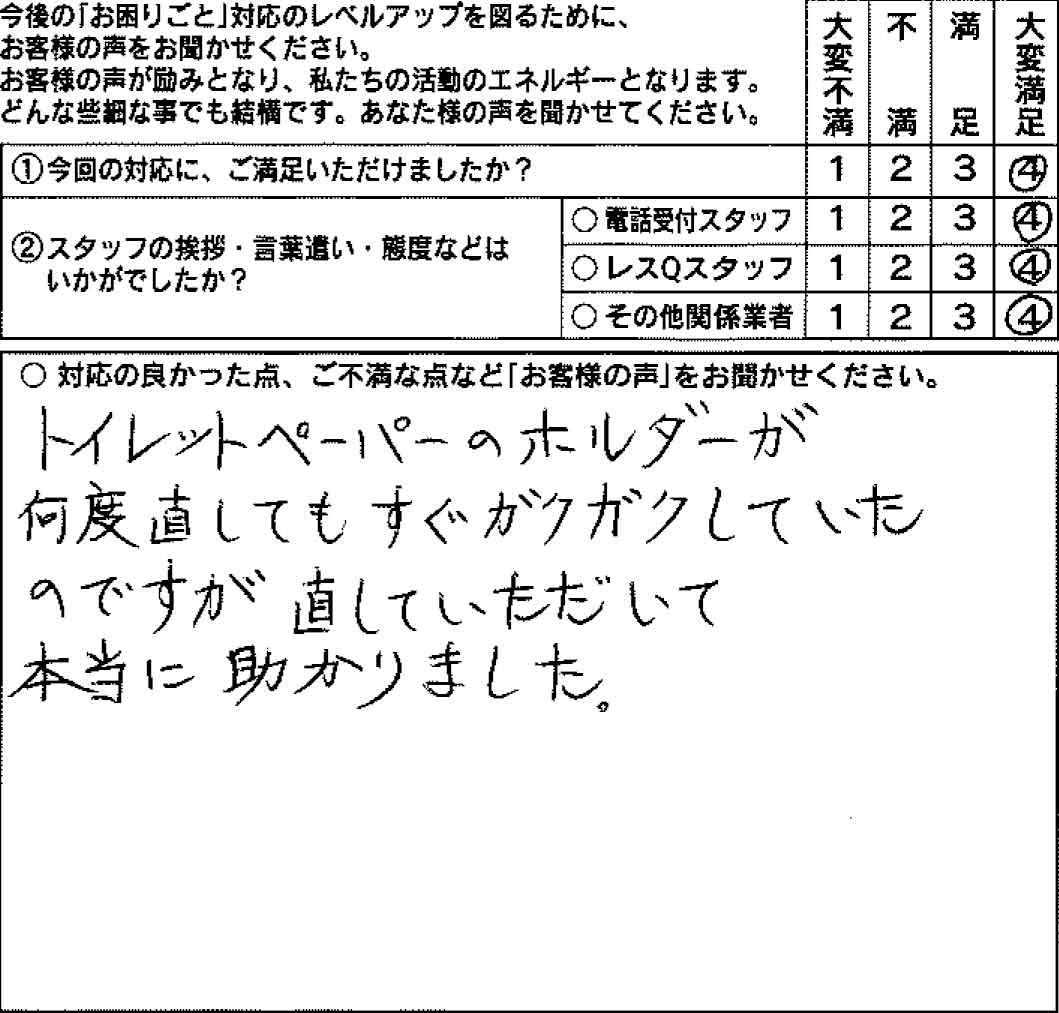 今後の「お困りごと」対応のレベルアップを図るために、
お客様の声をお聞かせください。
お客様の声が励みとなり、私たちの活動のエネルギーとなります。
どんな些細な事でも結構です。あなた様の声を聞かせてください。
大変不満 不満 満足 大変満足
①今回の対応に、ご満足いただけましたか？ 1 2 3 4
②スタッフの挨拶・言葉遣い・態度などは
いかがでしたか？
○ 電話受付スタッフ 1 2 3 4
○ レスQスタッフ 1 2 3 4
○ その他関係業者 1 2 3 4
○ 対応の良かった点、ご不満な点など「お客様の声」をお聞かせください。
トイレットペーパーのホルダーが
何度直してもすぐガクガクしていた
のですが 直していただいて
本当に 助かりました。